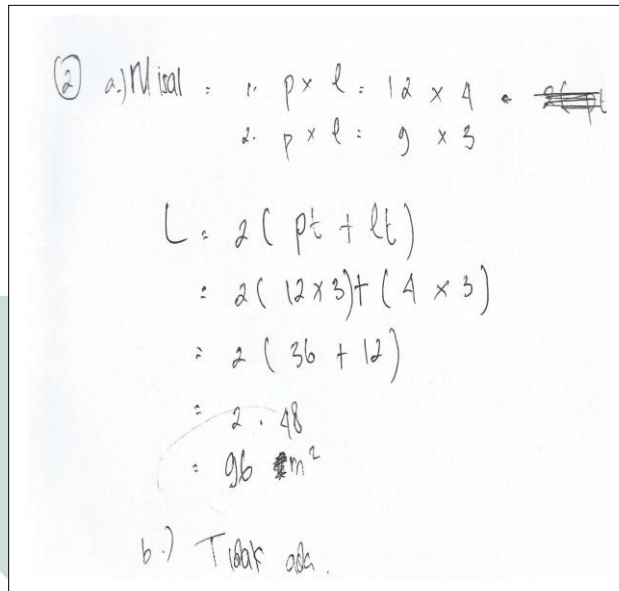 ② a.) Misal : 1. p x l = 12 x 4
2. p x l = 9 x 3
L = 2 ( pt + lt )
= 2 ( 12 x 3) + ( 4 x 3 )
= 2 ( 36 + 12 )
= 2 . 48
= 96 m²
b.) Tidak ada.